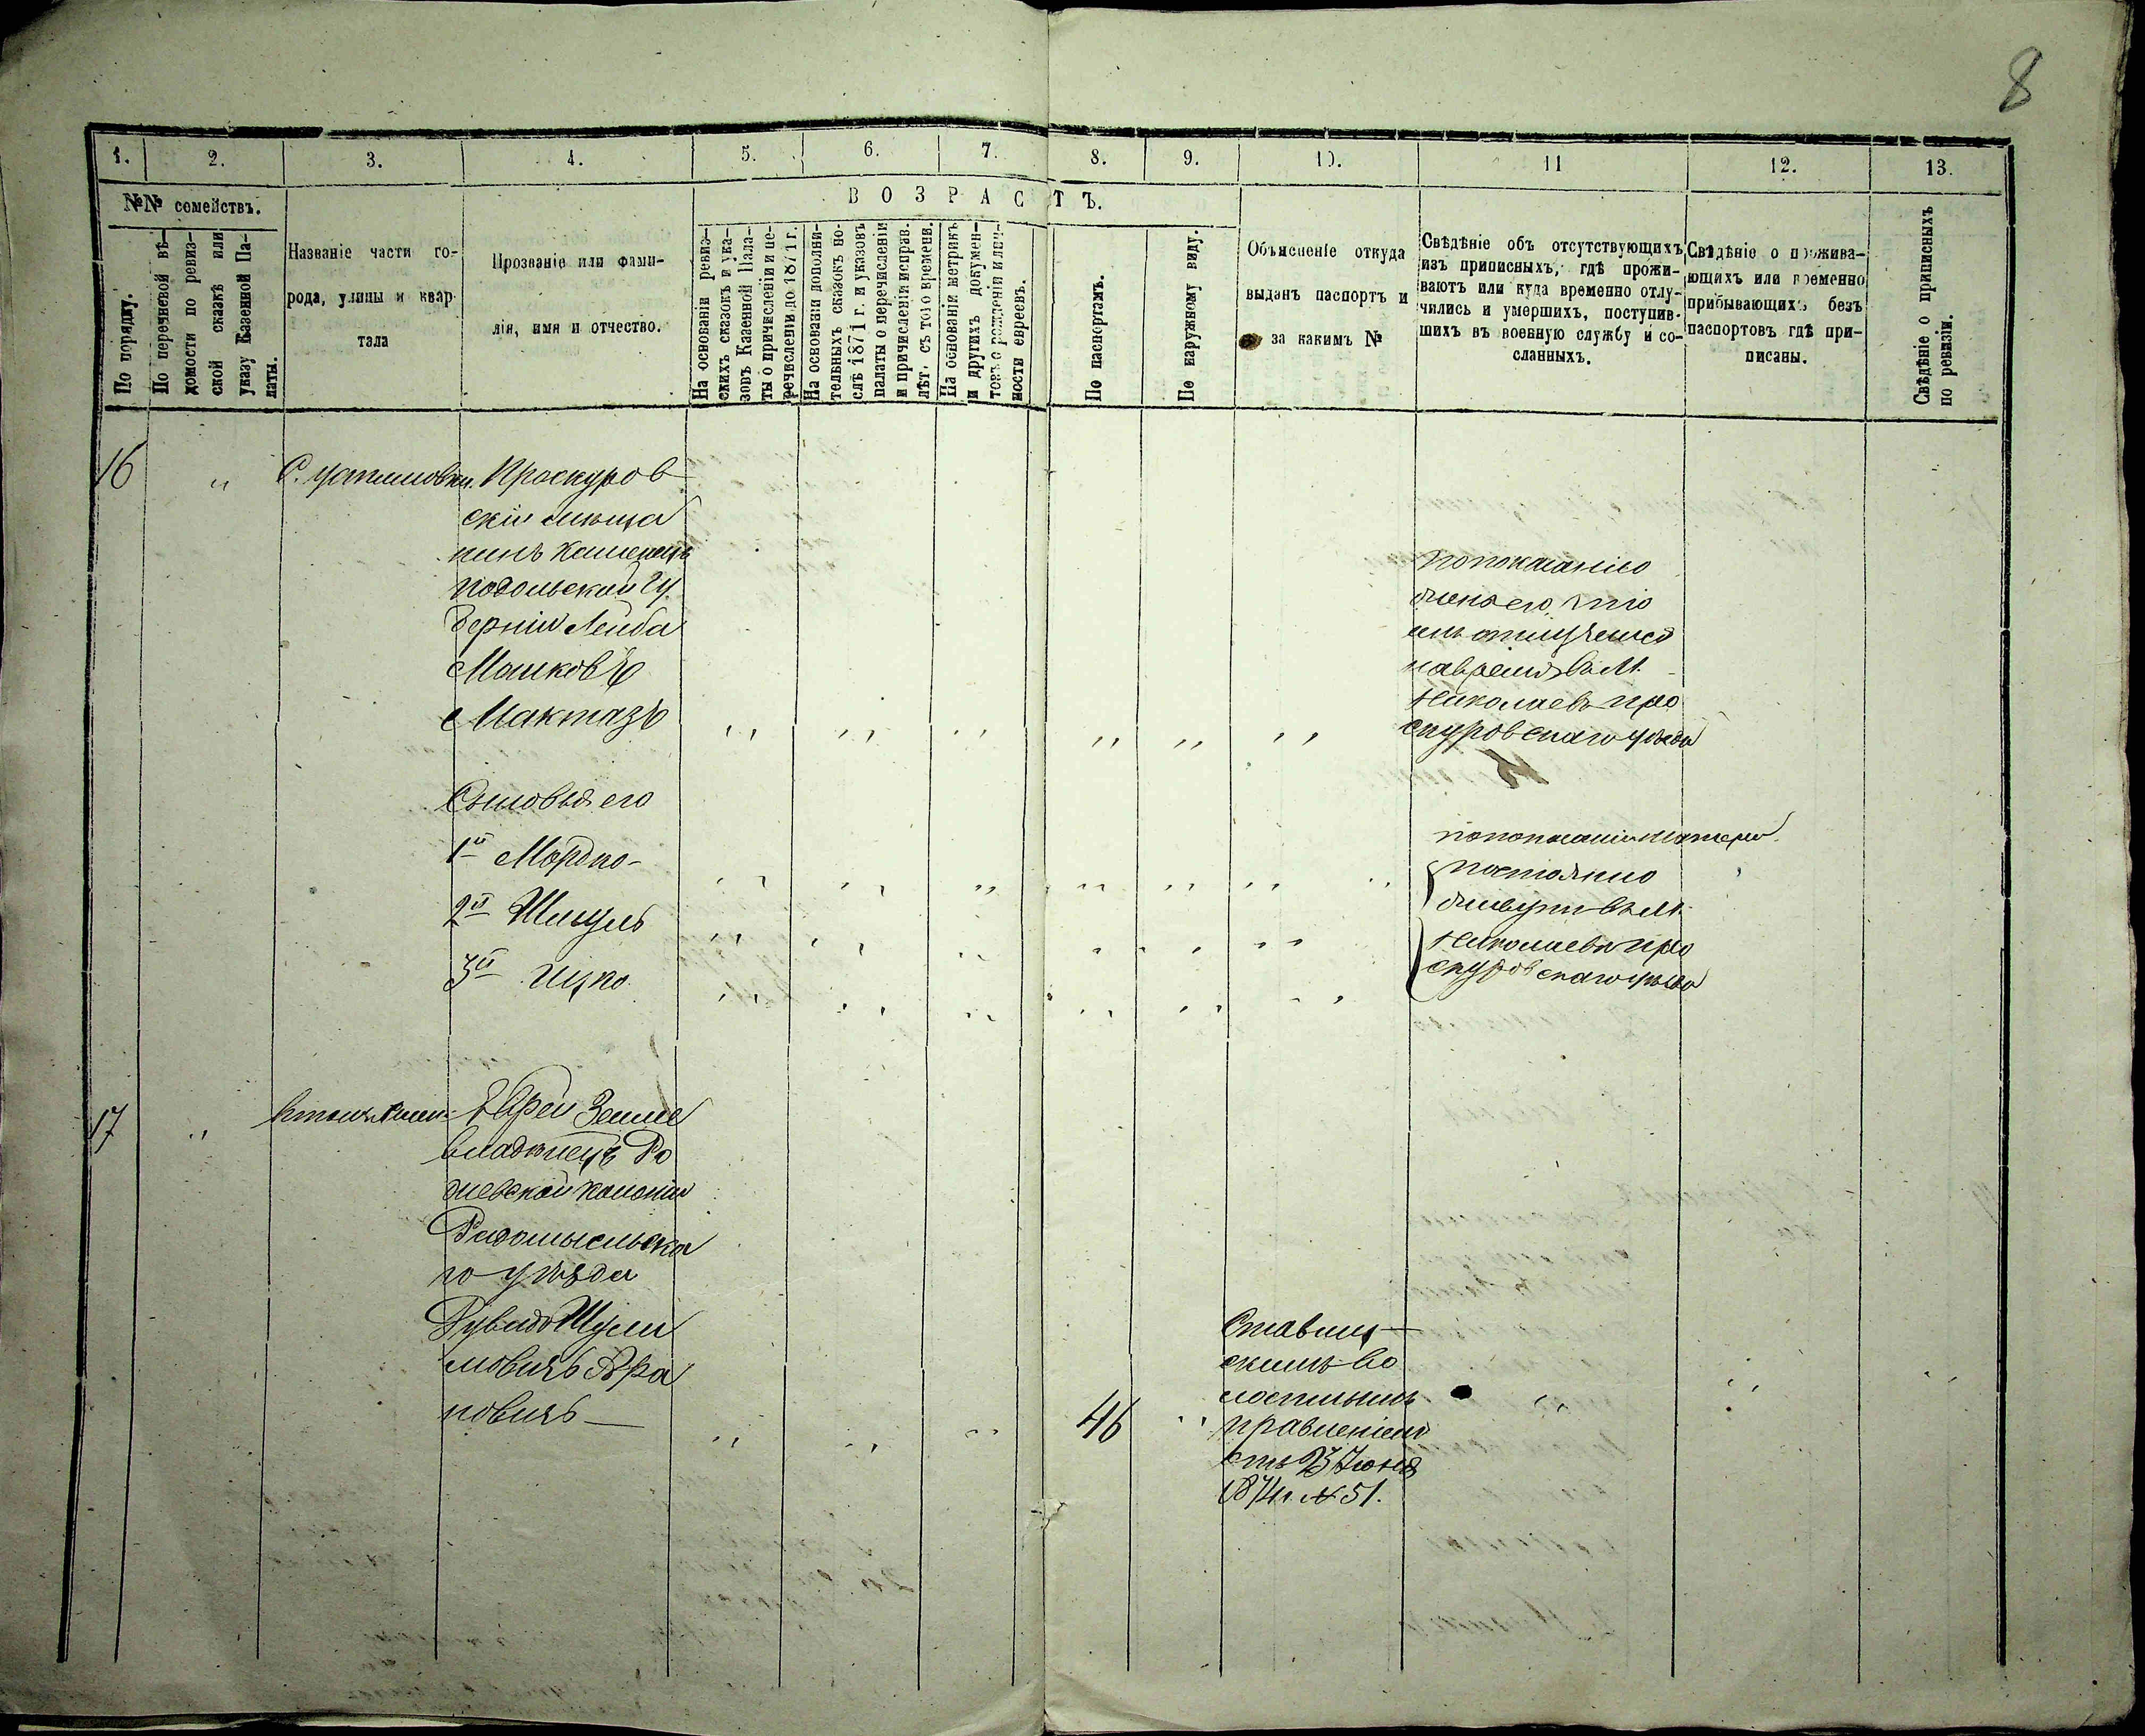 8
1. 2. 3. 4. 5. 6. 7. 8. 9. 10. 11 12. 13.
№№ семействъ.
По порядку.
По перечневой вѣ-
домости по ревиз-
ской сказкѣ или
указу Казенной Па-
латы.
Названіе части го-
рода, улицы и квар-
тала
Прозваніе или фами-
лія, имя и отчество.
ВОЗРАСТЪ.
На основаніи ревиз-
скихъ сказокъ и ука-
зовъ Казенной Пала-
ты о причисленіи и пе-
речисленіи до 1871 г.
На основаніи дополни-
тельныхъ сказокъ по-
слѣ 1871 г. и указовъ
палаты о перечисленіи
и причисленіи исправ.
лѣт. съ того времени.
На основаніи метрикъ
и другихъ докумен-
товъ о рожденіи и лич-
ности евреевъ.
По паспортамъ.
По наружному виду.
Объясненіе откуда
выданъ паспортъ и
за какимъ №
Свѣдѣніе объ отсутствующихъ
изъ приписныхъ, гдѣ прожи-
ваютъ или куда временно отлу-
чились и умершихъ, поступив-
шихъ въ военную службу и со-
сланныхъ.
Свѣдѣніе о прожива-
ющихъ или временно
прибывающихъ безъ
паспортовъ гдѣ при-
писаны.
Свѣдѣніе о приписныхъ
по ревизіи.
16 " С. Устиновки. Проскуров
скій мѣща
нинъ Каменецъ
Подольской Гу
берніи Лейба
Машковъ
Мактазъ
по показанію
жены его
отлучился
на время въ М.
Николаевъ Про
скуровскаго уѣзда
Сыновья его
1й Мордко-
2й Шмуль
3й Ицко
по показанію матери
постоянно
живутъ въ М.
Николаевъ Про
скуровскаго уѣзда
17 " Еврей Земле
владѣлецъ Ро
жевской Колоніи
Радомысльска
го уѣзда
Рувинъ Шули
мовичъ Ара
повичъ
46
Ставищ
скимъ Во
лостнымъ
Правленіемъ
отъ 23 Іюня
1874 г. № 51.